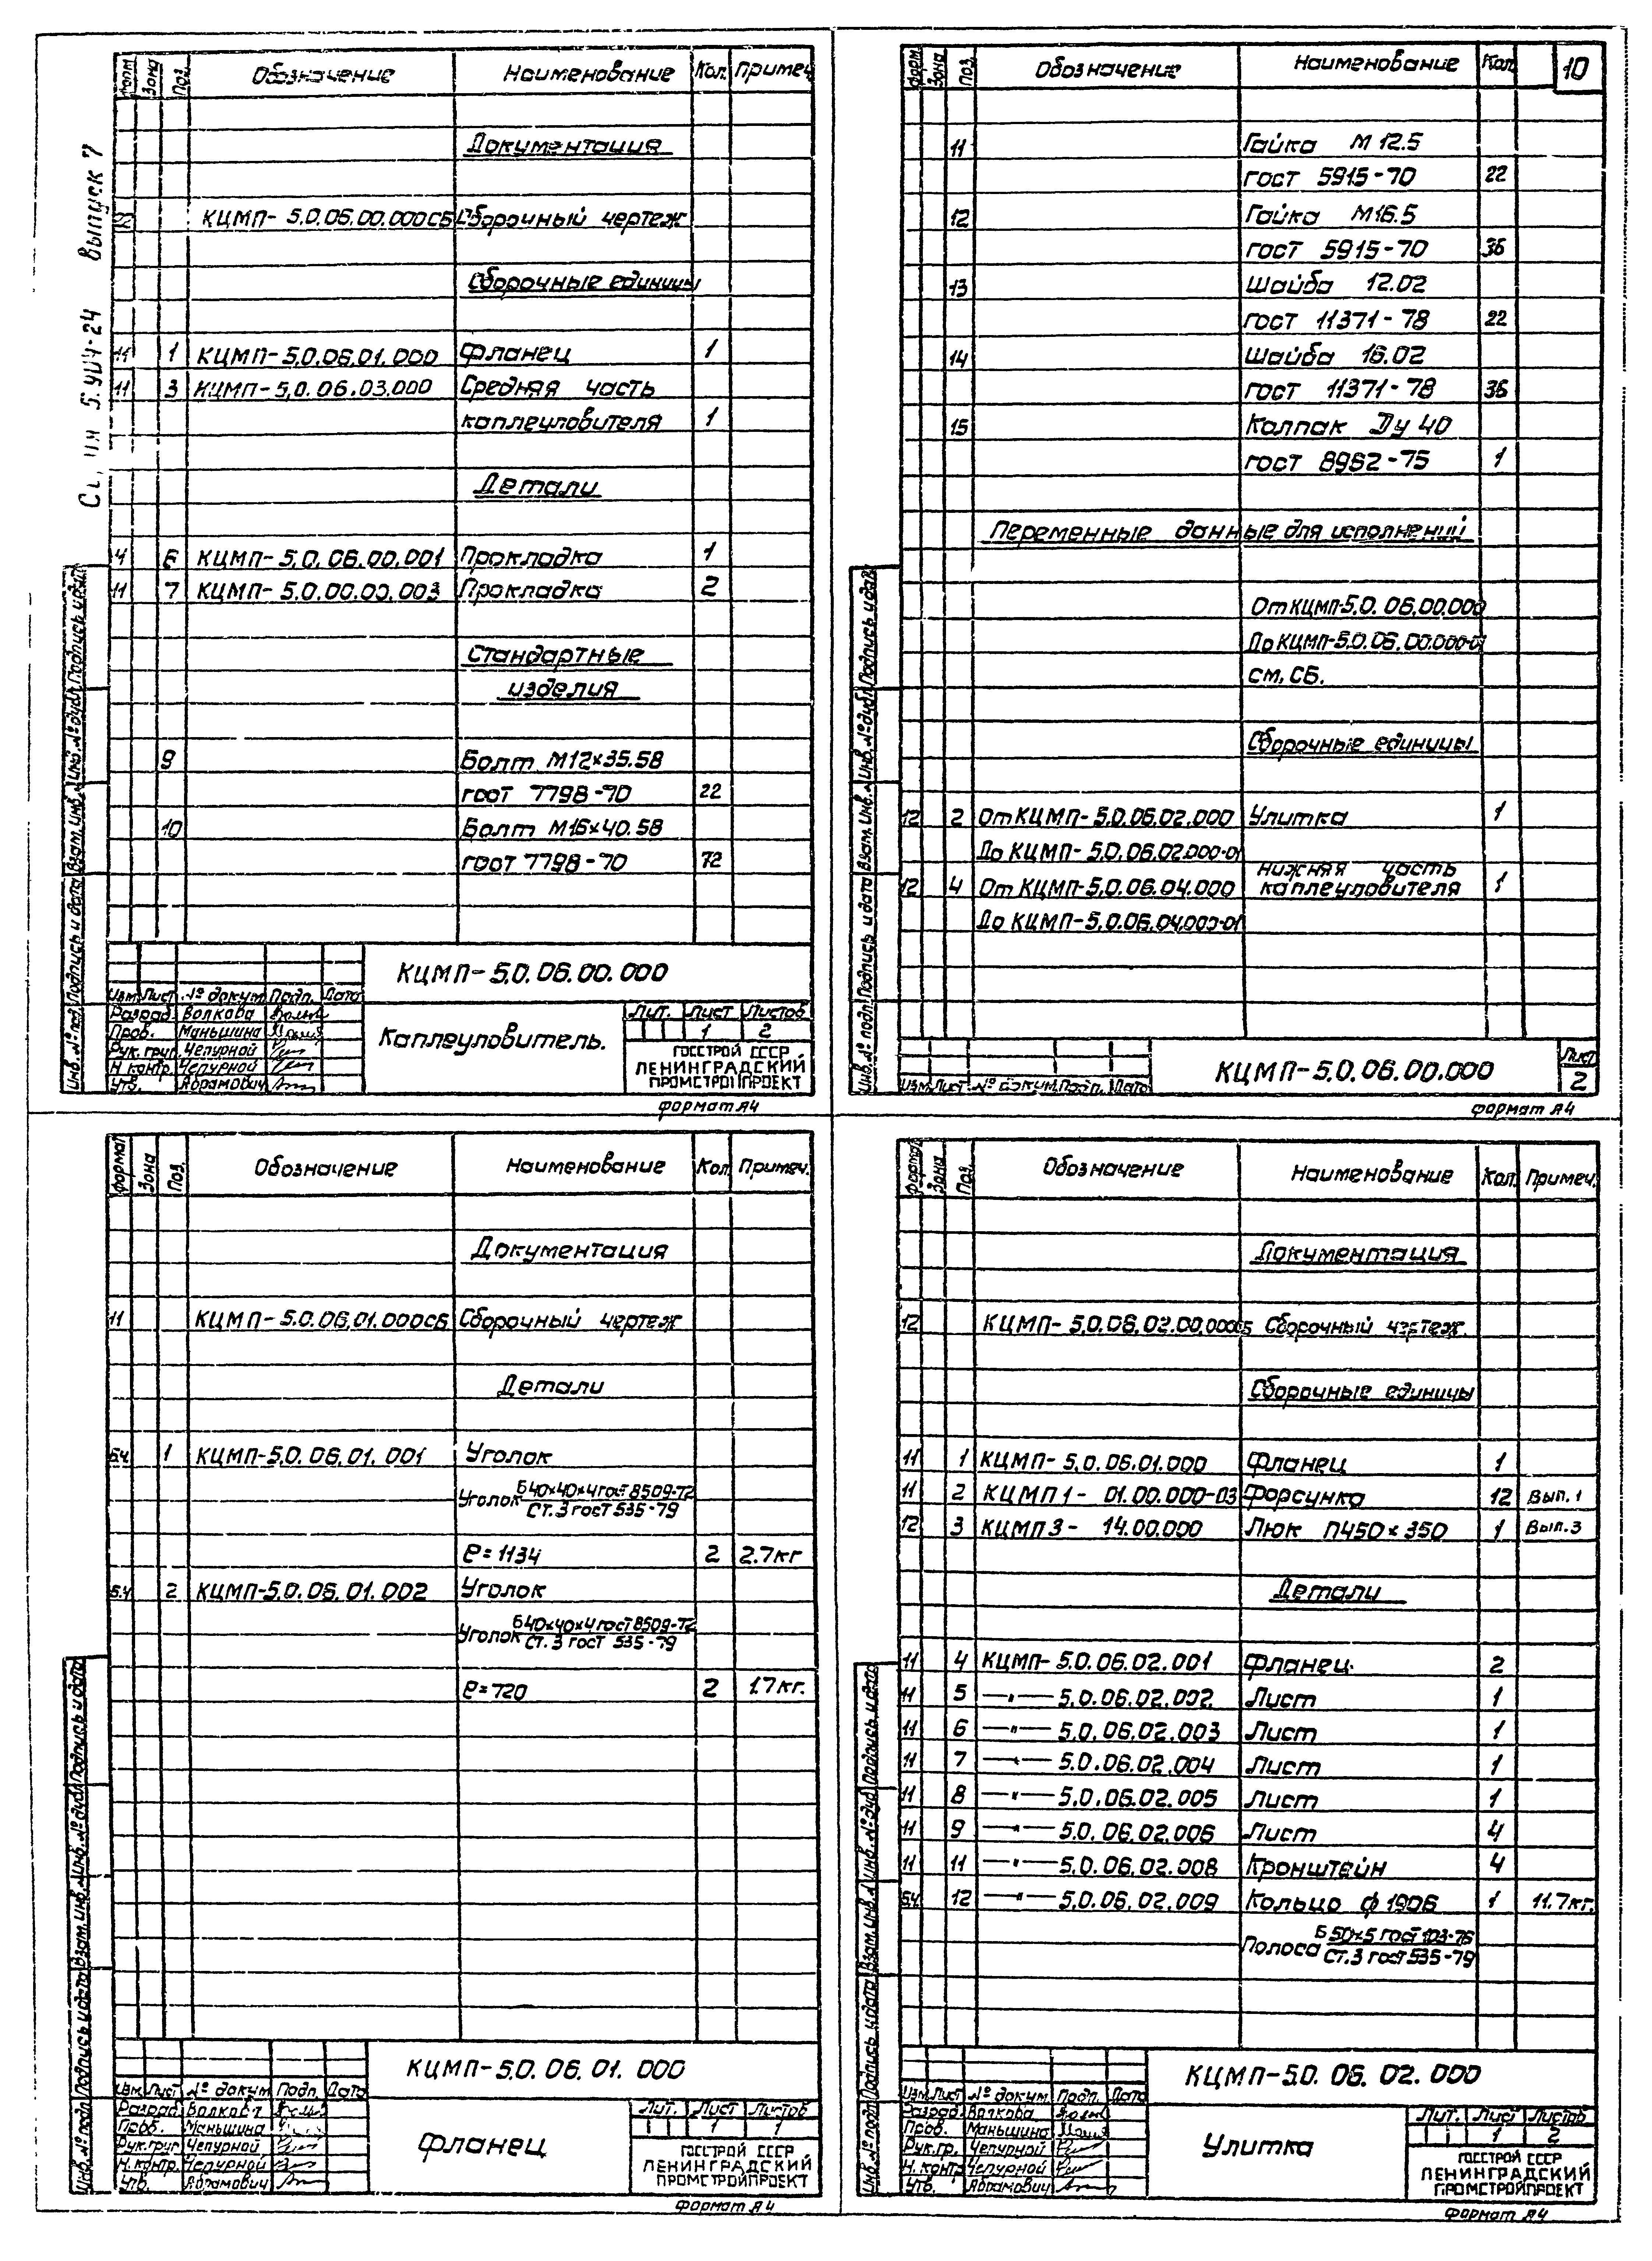 Выпуск 7
5.904-24
Форм Зона Поз. Обозначение Наименование Кол. Примеч.
Документация
22 КЦМП-5.0.06.00.000СБ Сборочный чертеж
Сборочные единицы
11 1 КЦМП-5.0.06.01.000 Фланец 1
11 3 КЦМП-5.0.06.03.000 Средняя часть
каплеуловителя 1
Детали
4 6 КЦМП-5.0.06.00.001 Прокладка 1
11 7 КЦМП-5.0.00.00.003 Прокладка 2
Стандартные
изделия
9 Болт М12×35.58
ГОСТ 7798-70 22
10 Болт М16×40.58
ГОСТ 7798-70 72
Инв. № подл. Подпись и дата Взам. инв. № Инв. № дубл. Подпись и дата
КЦМП-5.0.06.00.000
Изм Лист № докум. Подп. Дата
Разраб. Волкова
Пров. Маньшина
Рук. груп. Чепурной
Н контр. Чепурной
Утв. Абрамович
Каплеуловитель.
Лит. Лист Листов
1 2
ГОССТРОЙ СССР
ЛЕНИНГРАДСКИЙ
ПРОМСТРОЙПРОЕКТ
формат А4
Форм. Зона Поз. Обозначение Наименование Кол. 10
11 Гайка М12.5
ГОСТ 5915-70 22
12 Гайка М16.5
ГОСТ 5915-70 36
13 Шайба 12.02
ГОСТ 11371-78 22
14 Шайба 16.02
ГОСТ 11371-78 36
15 Колпак Ду 40
ГОСТ 8962-75 1
Переменные данные для исполнений
От КЦМП-5.0.06.00.000
До КЦМП-5.0.06.00.000-01
см. СБ.
Сборочные единицы
12 2 От КЦМП-5.0.06.02.000 Улитка 1
До КЦМП-5.0.06.02.000-01
Нижняя часть
12 4 От КЦМП-5.0.06.04.000 каплеуловителя 1
До КЦМП-5.0.06.04.000-01
Инв. № подл. Подпись и дата Взам. инв. № Инв. № дубл. Подпись и дата
Изм. Лист № докум. Подп. Дата
КЦМП-5.0.06.00.000
Лист
2
формат А4
Формат Зона Поз. Обозначение Наименование Кол Примеч.
Документация
11 КЦМП-5.0.06.01.000СБ Сборочный чертеж
Детали
Б.Ч. 1 КЦМП-5.0.06.01.001 Уголок
Уголок Б40×40×4 ГОСТ 8509-72
Ст.3 ГОСТ 535-79
ℓ=1134 2 2.7кг
Б.Ч. 2 КЦМП-5.0.06.01.002 Уголок
Уголок Б40×40×4 ГОСТ 8509-72
Ст.3 ГОСТ 535-79
ℓ=720 2 1.7кг.
Инв. № подл. Подпись и дата Взам. инв. № Инв. № дубл. Подпись и дата
КЦМП-5.0.06.01.000
Изм. Лист № докум. Подп. Дата
Разраб.
Пров. Маньшина
Рук. груп. Чепурной
Н. контр. Чепурной
Утв. Абрамович
Фланец
Лит. Лист Листов
1 1
ГОССТРОЙ СССР
ЛЕНИНГРАДСКИЙ
ПРОМСТРОЙПРОЕКТ
Формат А4
Формат Зона Поз. Обозначение Наименование Кол. Примеч.
Документация
12 КЦМП-5.0.06.02.00.000СБ Сборочный чертеж.
Сборочные единицы
11 1 КЦМП-5.0.06.01.000 Фланец 1
11 2 КЦМП1-01.00.000-03 Форсунка 12 Вып.1
12 3 КЦМП3-14.00.000 Люк П450×350 1 Вып.3
Детали
11 4 КЦМП-5.0.06.02.001 Фланец. 2
11 5 —"— 5.0.06.02.002 Лист 1
11 6 —"— 5.0.06.02.003 Лист 1
11 7 —"— 5.0.06.02.004 Лист 1
11 8 —"— 5.0.06.02.005 Лист 1
11 9 —"— 5.0.06.02.006 Лист 4
11 11 —"— 5.0.06.02.008 Кронштейн 4
Б.Ч. 12 —"— 5.0.06.02.009 Кольцо ф 1906 1 11.7кг.
Полоса Б 50×5 ГОСТ 103-76
Ст.3 ГОСТ 535-79
Инв. № подл. Подпись и дата Взам. инв. № Инв. № дубл. Подпись и дата
КЦМП-5.0.06.02.000
Изм Лист № докум. Подп. Дата
Разраб. Волкова
Пров. Маньшина
Рук. гр. Чепурной
Н. контр Чепурной
Утв. Абрамович
Улитка
Лит. Лист Листов
1 2
ГОССТРОЙ СССР
ЛЕНИНГРАДСКИЙ
ПРОМСТРОЙПРОЕКТ
Формат А4